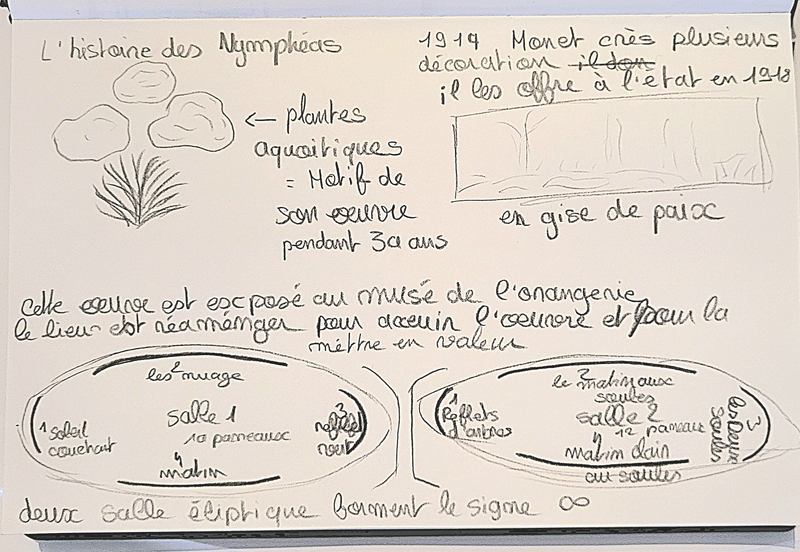 L'histoire des Nymphéas
1914 Monet crès plusieurs
décoration il don
il les offre à l'état en 1918
← plantes
aquaitiques
= Motif de
son œuvre
pendant 30 ans
en gise de paix
cette œuvre est exposé au musé de l'orangerie
le lieu est réaménger pour accuin l'œuvre et pour la
mettre en valeur
2
les nuage
1 soleil
couchant
salle 1
10 panneaux
3
reflet
vert
4
matin
2
le matin aux
saules
1
Reflets
d'arbres
salle 2
12 panneaux
3
les Deux
saules
4
matin clair
au saules
deux salle éliptique forment le signe ∞